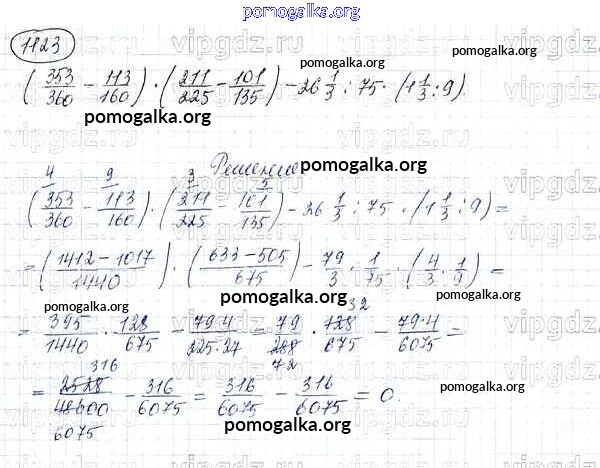 pomogalka.org
1123
vipgdz.ru vipgdz.ru vipgdz.ru
(353/360 − 113/160) · (211/225 − 101/135) − 26 1/3 : 75 · (1 1/3 : 9).
pomogalka.org pomogalka.org
Решение pomogalka.org
4 9 3 5
(353/360 − 113/160) · (211/225 − 101/135) − 26 1/3 : 75 · (1 1/3 : 9) =
= (1412 − 1017)/1440 · (633 − 505)/675 − 79/3 · 1/75 · (4/3 · 1/9) =
pomogalka.org pomogalka.org pomogalka.org
32
= 395/1440 · 128/675 − 79·4/225·27 = 79/288 · 128/675 − 79·4/6075 =
72
316
= 2528/48600 − 316/6075 = 316/6075 − 316/6075 = 0.
6075
pomogalka.org pomogalka.org